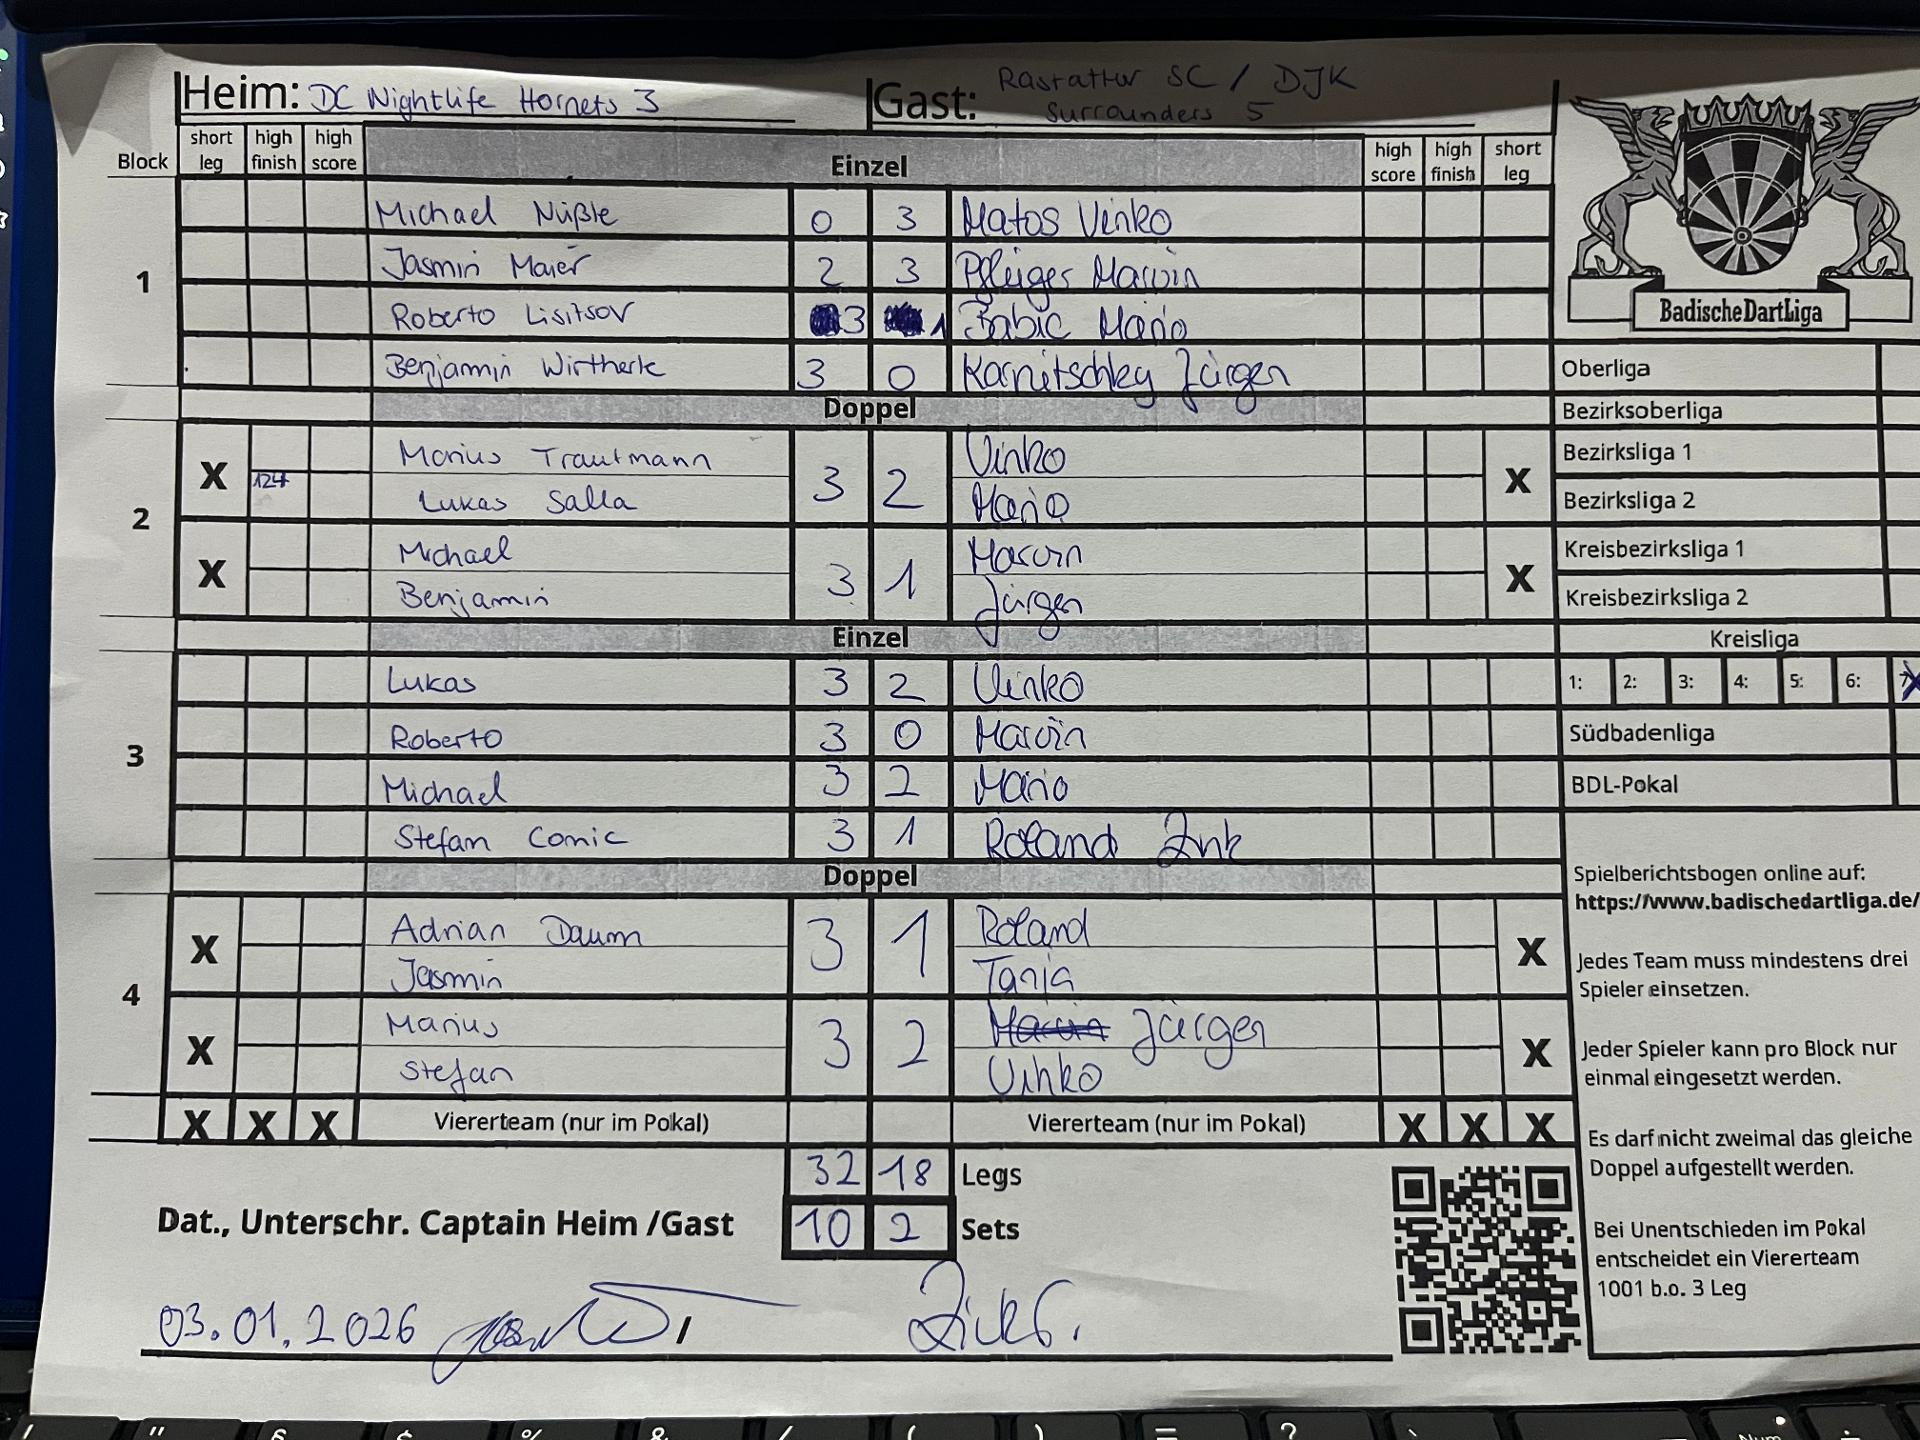 Heim: DC Nightlife Hornets 3 Gast: Rastatter SC / DJK
Surrounders 5
Block short leg high finish high score Einzel high score high finish short leg
1
Michael Nüßle 0 3 Matos Vinko
Jasmin Maier 2 3 Pfleiger Marvin
Roberto Lisitsov 3 1 Babic Mario
Benjamin Wirtherle 3 0 Karnitschky Jürgen
Doppel
2
X Marius Trautmann 3 2 Vinko X
124 Lukas Salla Mario
X Michael 3 1 Marvin X
Benjamin Jürgen
Einzel
3
Lukas 3 2 Vinko
Roberto 3 0 Marvin
Michael 3 2 Mario
Stefan Comic 3 1 Roland Zink
Doppel
4
X Adrian Daum 3 1 Roland X
Jasmin Tanja
X Marius 3 2 Marvin Jürgen X
Stefan Vinko
X X X Viererteam (nur im Pokal) Viererteam (nur im Pokal) X X X
32 18 Legs
Dat., Unterschr. Captain Heim /Gast 10 2 Sets
03.01.2026
BadischeDartLiga
Oberliga
Bezirksoberliga
Bezirksliga 1
Bezirksliga 2
Kreisbezirksliga 1
Kreisbezirksliga 2
Kreisliga
1: 2: 3: 4: 5: 6: 7 X
Südbadenliga
BDL-Pokal
Spielberichtsbogen online auf:
https://www.badischedartliga.de/
Jedes Team muss mindestens drei
Spieler einsetzen.
Jeder Spieler kann pro Block nur
einmal eingesetzt werden.
Es darf nicht zweimal das gleiche
Doppel aufgestellt werden.
Bei Unentschieden im Pokal
entscheidet ein Viererteam
1001 b.o. 3 Leg